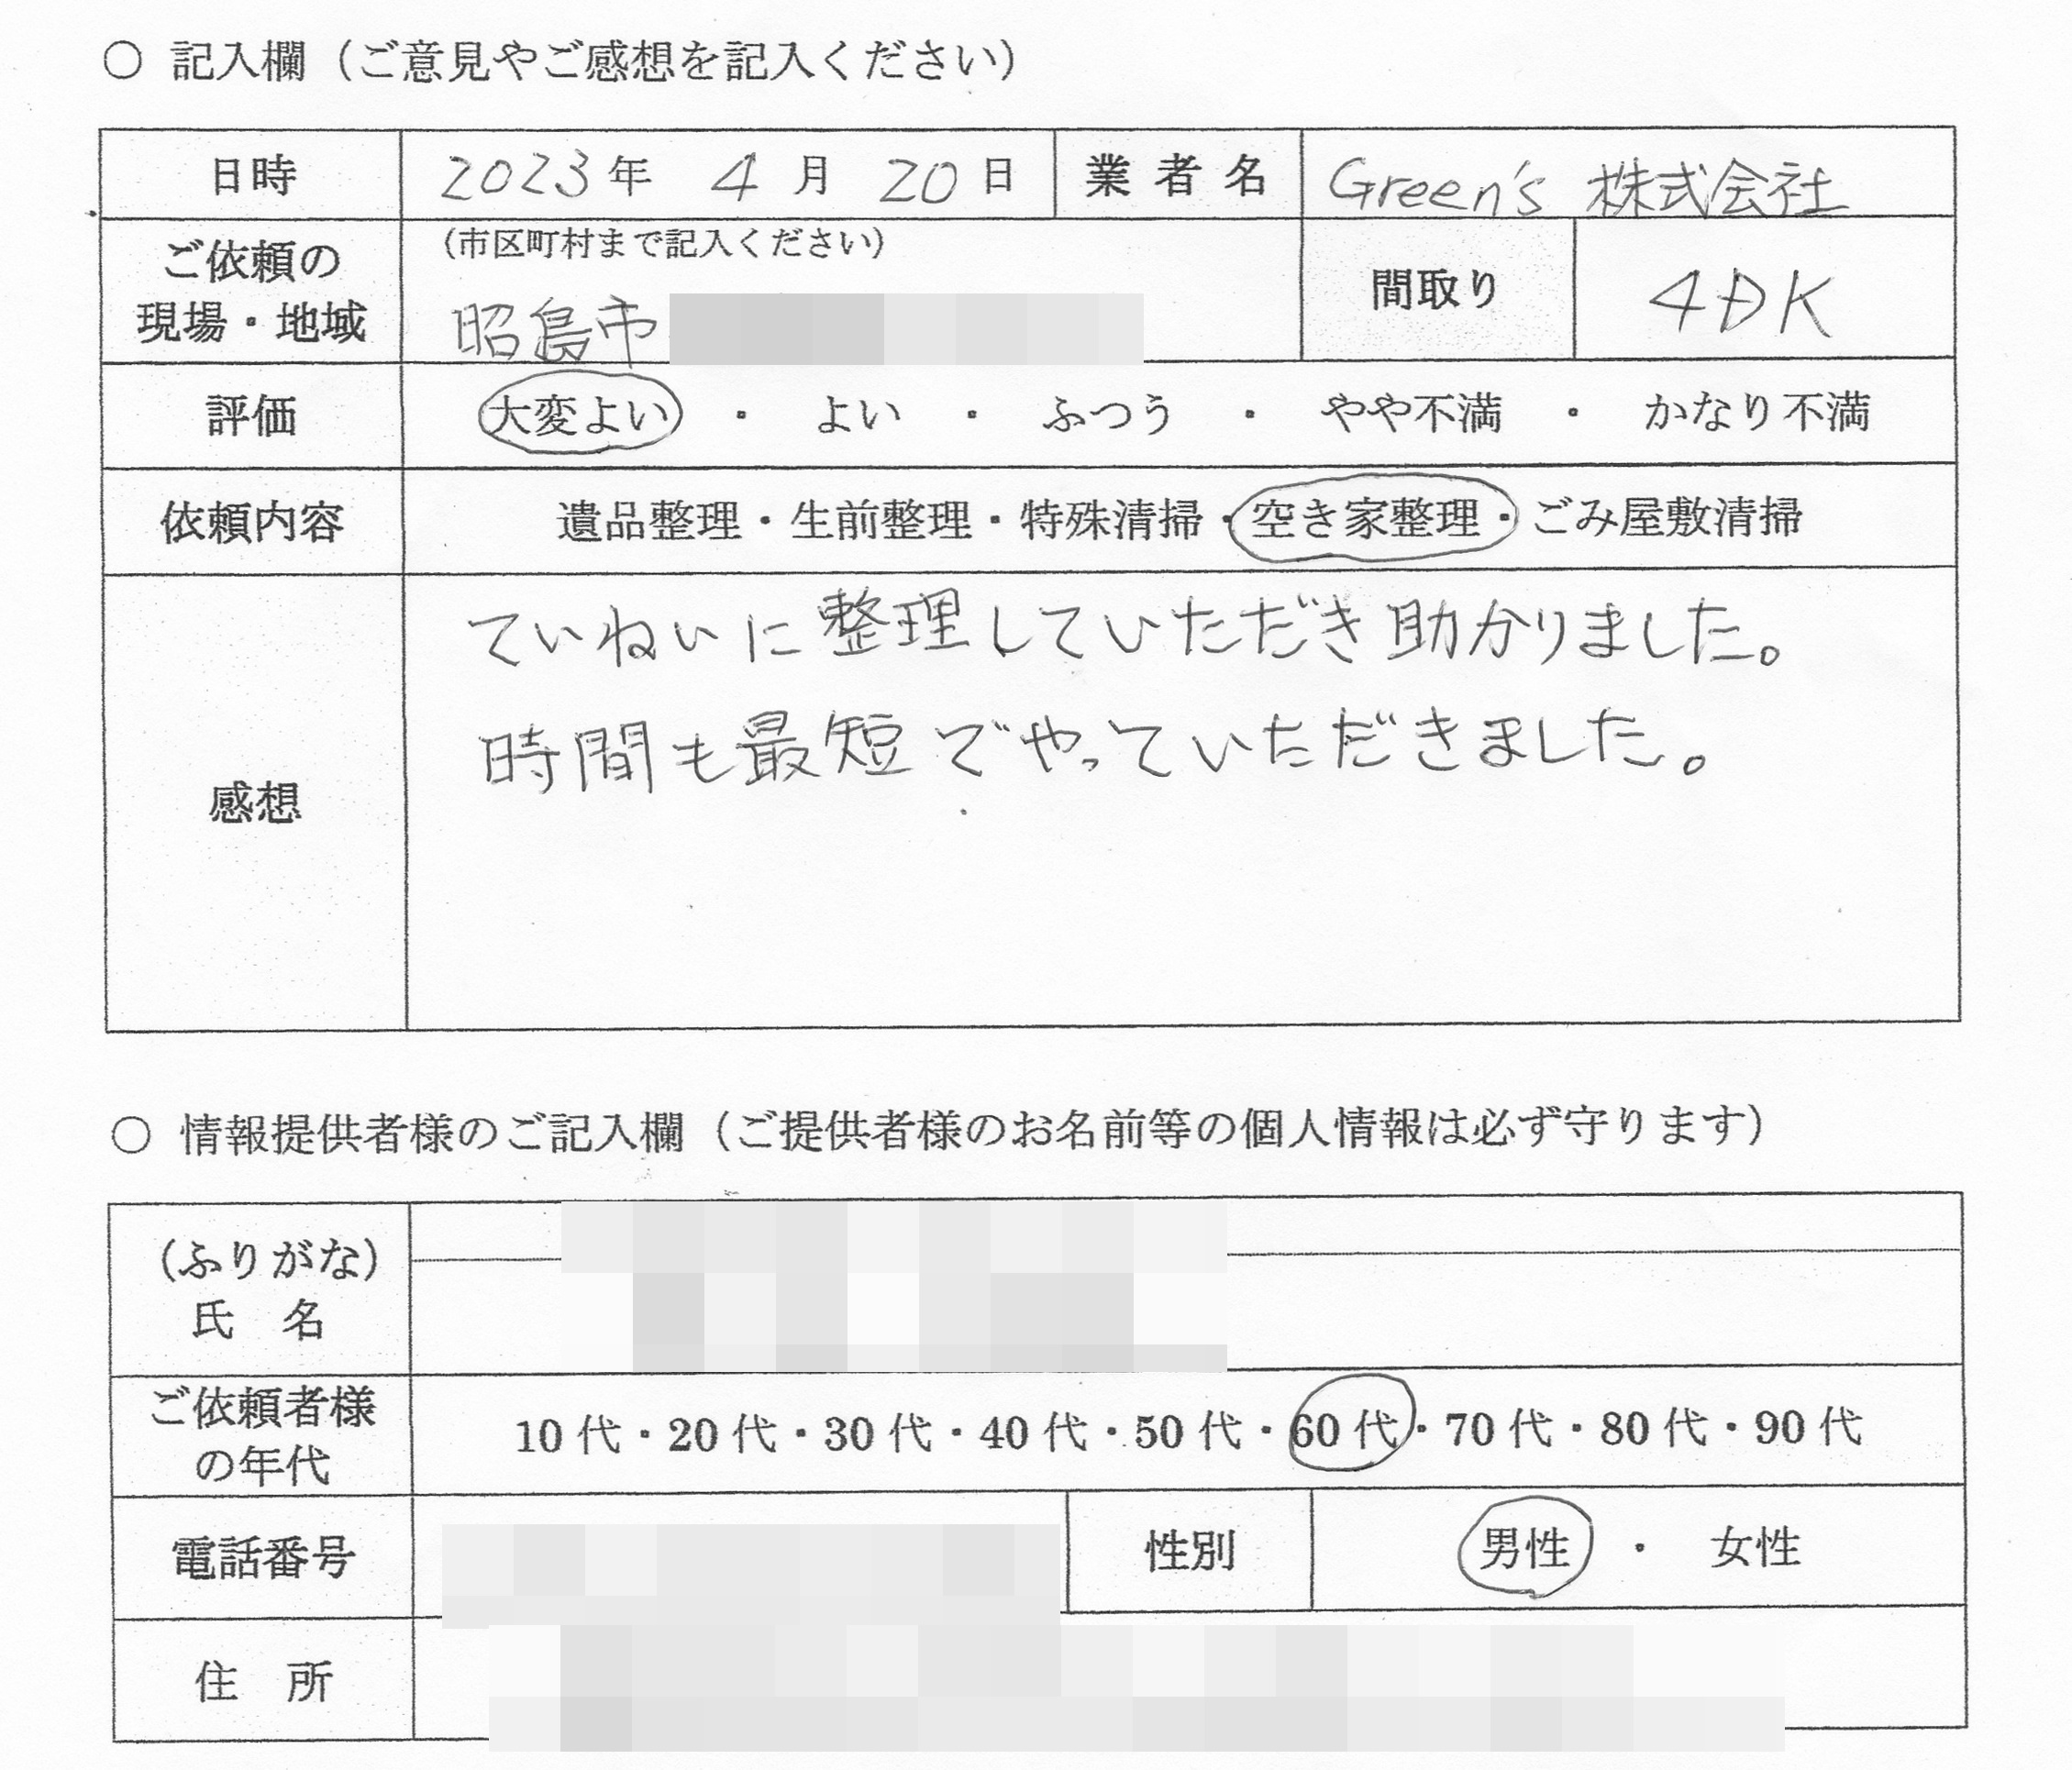 ○ 記入欄（ご意見やご感想を記入ください）
日時 2023年 4月 20日 業者名 Green's 株式会社
ご依頼の
現場・地域
（市区町村まで記入ください）
昭島市
間取り 4DK
評価 大変よい ・ よい ・ ふつう ・ やや不満 ・ かなり不満
依頼内容 遺品整理・生前整理・特殊清掃・空き家整理・ごみ屋敷清掃
感想
ていねいに整理していただき助かりました。
時間も最短でやっていただきました。
○ 情報提供者様のご記入欄（ご提供者様のお名前等の個人情報は必ず守ります）
（ふりがな）
氏 名
ご依頼者様
の年代
10代・20代・30代・40代・50代・60代・70代・80代・90代
電話番号
性別 男性 ・ 女性
住 所